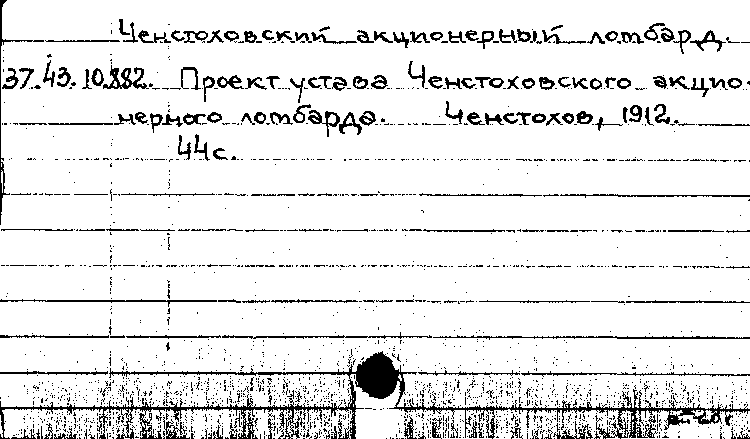 Ченстоховский акционерный ломбард.
37.43.10.882. Проект устава Ченстоховского акцио-
нерного ломбарда. Ченстохов, 1912.
44с.